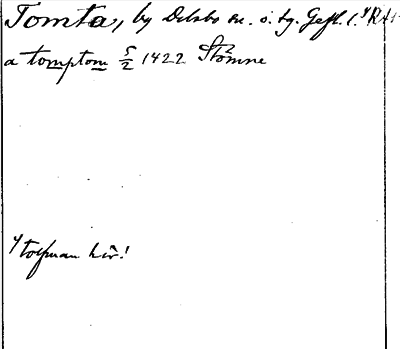 Tomta, by Delsbo sn. o. tg. Gefl. l.
a tomptom 5/2 1422 Stömne
tolfman här!